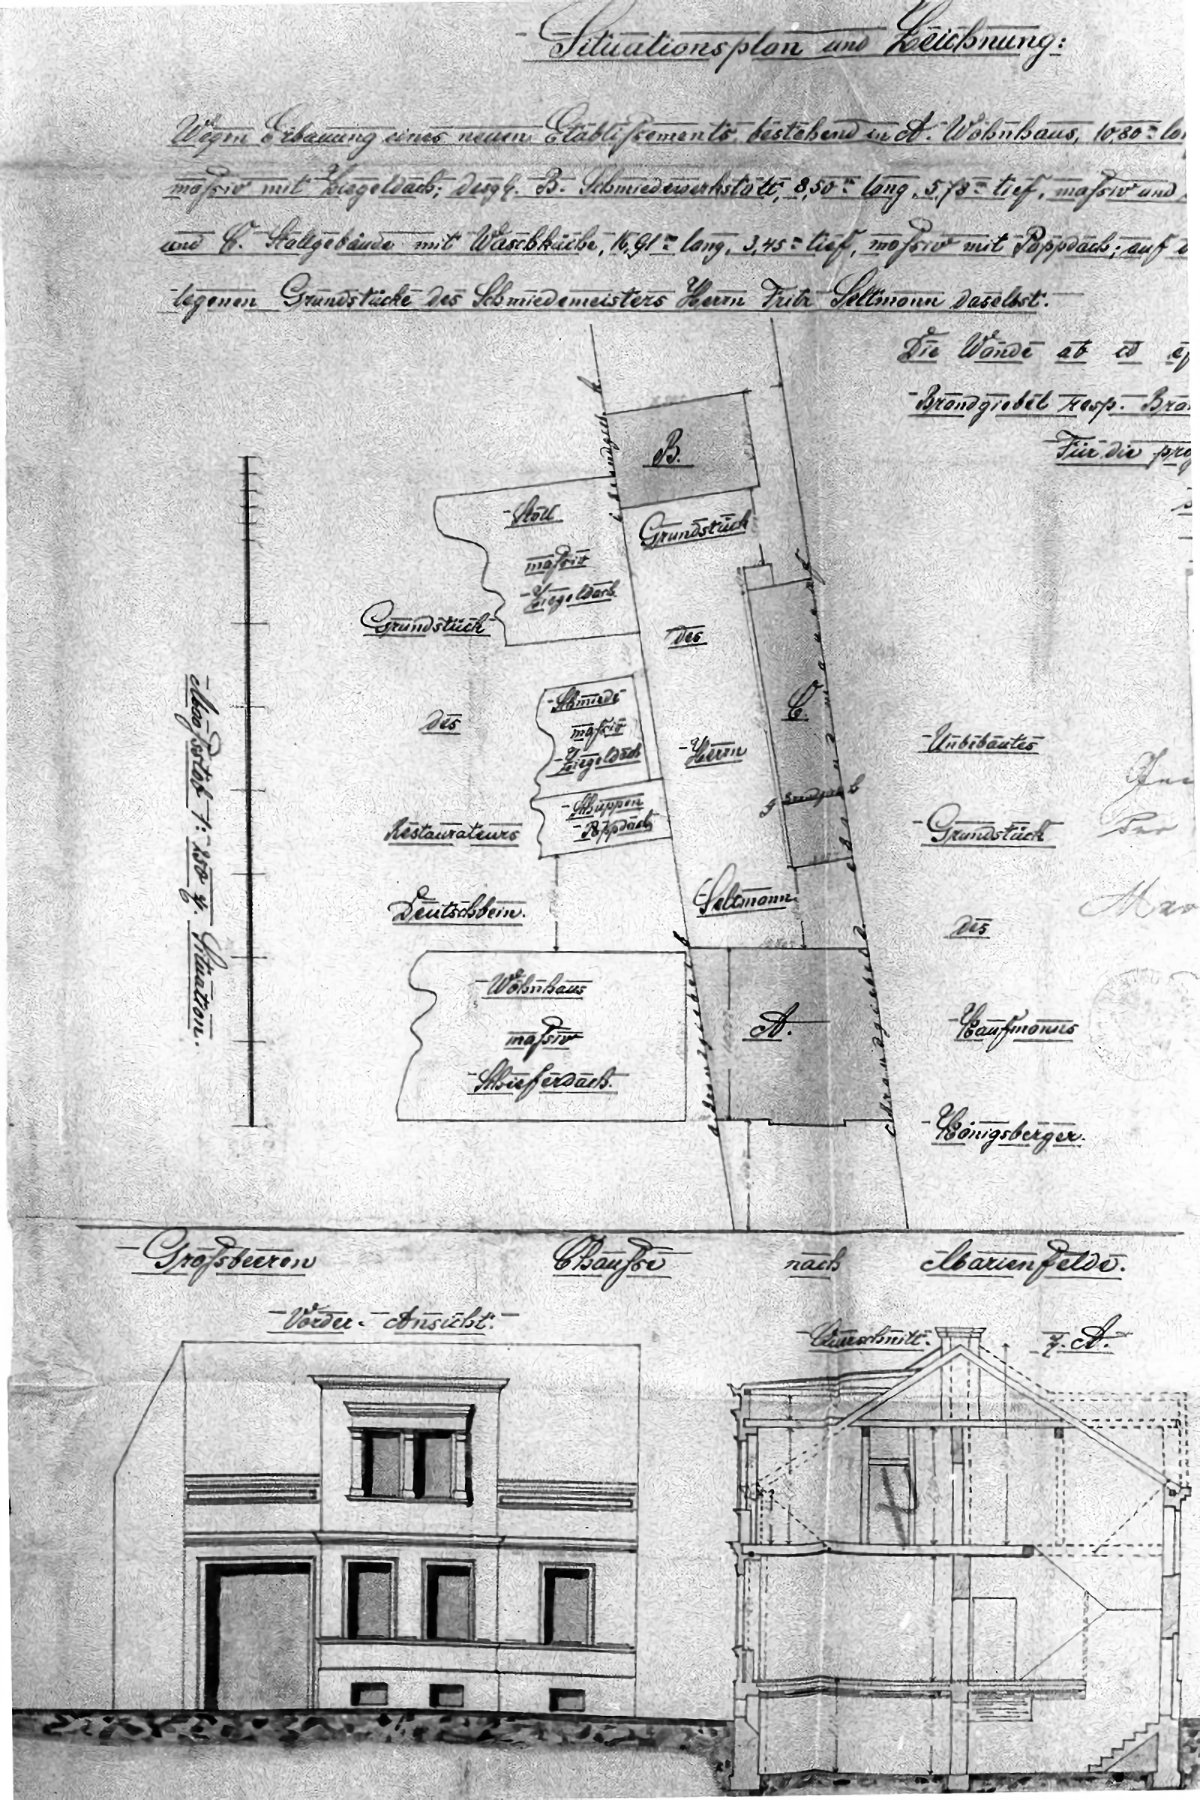 Situationsplan und Zeichnung:
Wegen Erbauung eines neuen Etablissements, bestehend in A. Wohnhaus, 10,80 m
massiv mit Ziegeldach; desgl. B. Schmiedewerkstatt, 8,50 m lang, 5,78 m tief, massiv und
und C. Stallgebäude mit Waschküche, 16,91 m lang, 3,45 m tief, massiv mit Pappdach; auf
legenen Grundstücke des Schmiedemeisters Herrn Fritz Seltmann daselbst.
Die Wände ab cd ef
Brandgiebel resp.
Für die
B.
Stall
massiv
Ziegeldach
Grundstück
Grundstück
des
Schmiede
massiv
Ziegeldach
C.
des
Herrn
Unbebautes
Schuppen
Pappdach
Restaurateurs
Grundstück
Maassstab 1:250 z. Situation.
Deutschbein.
Seltmann
des
Wohnhaus
massiv
Schieferdach.
A.
Kaufmanns
Königsberger.
a Brandgiebel b
c Brandgiebel d
Grossbeeren Chaussee nach Marienfelde.
Vorder-Ansicht.
Querschnitt. z. A.